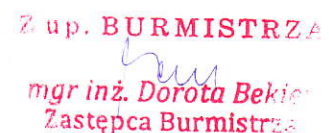 Z up. BURMISTRZA
mgr inż. Dorota Bekie
Zastępca Burmistrza